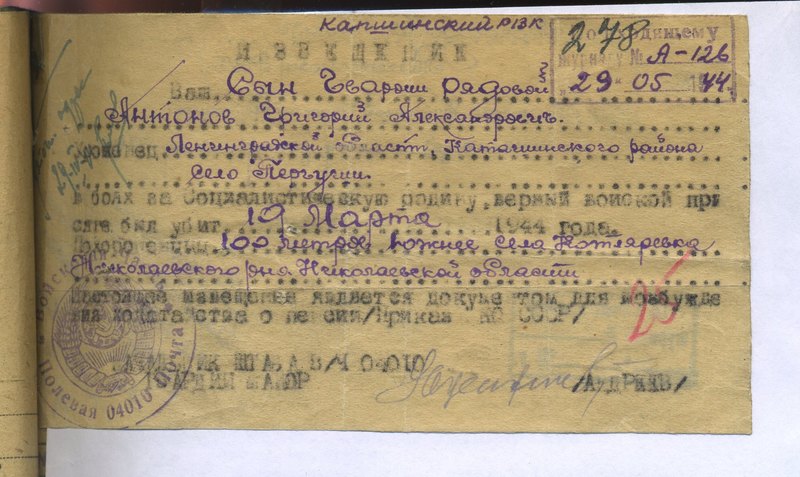 капшинский РВК
278
ИЗВЕЩЕНИЕ
журналу № А-126
"29" 05 1944.
Ваш, Сын Гвардии рядовой
Антонов Григорий Александрович.
Уроженец Ленинградской област. Капшинского района
село
в боях за Социалистическую родину, верный воиской при
сяге был убит 19 Марта 1944 года.
Похоронен 100 метров южнее села Котляревка
Николаевского р-на Николаевской области
Настоящее извещение является докуме том для возбужде
ния ходатайства о пенсии/Приказ СССР/
25
НИК ШТА.А В/Ч 04010
ГВАРДИИ МАЙОР /АНДРИЕВ/
Полевая 04010 Почта